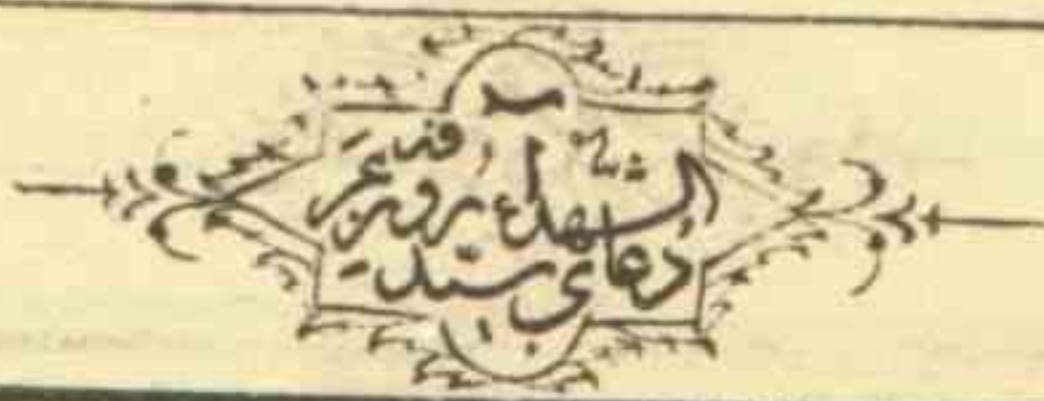 دعای سید
الشهداء روز عرفه